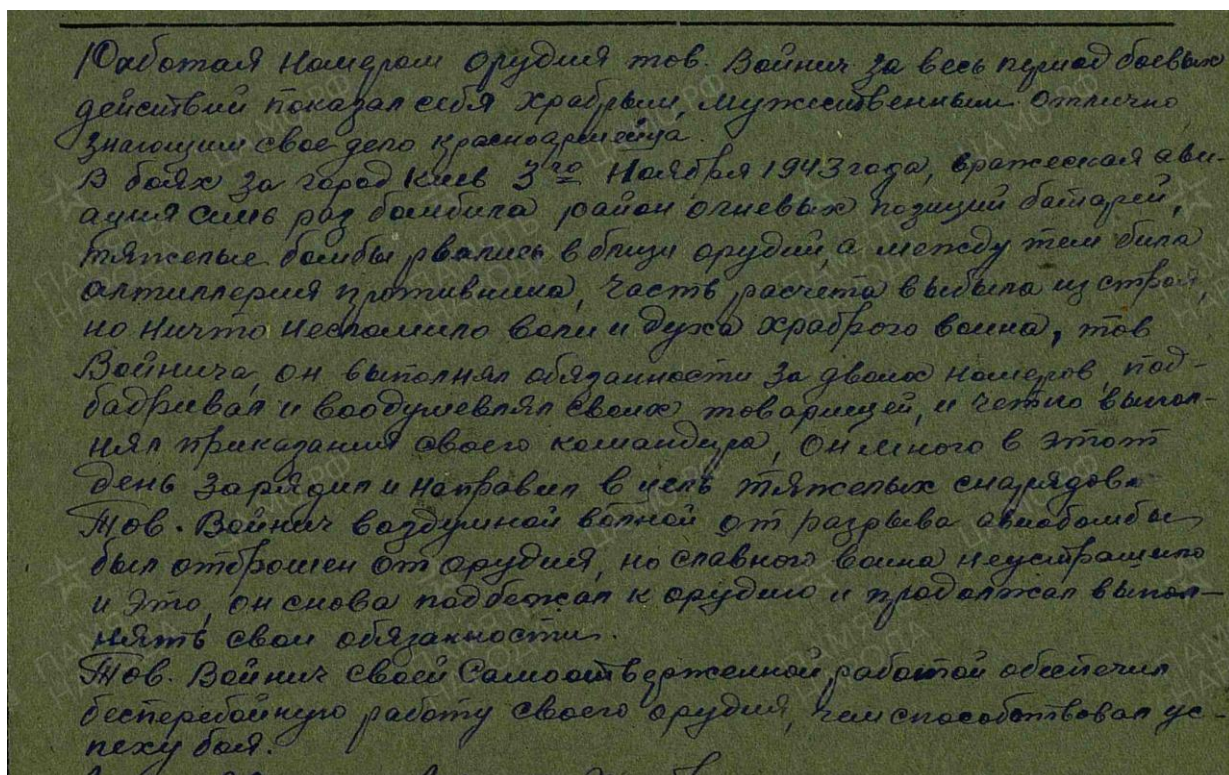 Работая номером орудия тов. Войнич за весь период боевых
действий показал себя храбрым, мужественным отлично
знающим свое дело красноармейца.
В боях за город Киев 3го Ноября 1943 года, вражеская ави-
ация семь раз бомбила район огневых позиций батарей,
тяжелые бомбы рвались в близи орудий а между тем била
артиллерия противника, часть расчета выбыла из строя,
но ничто несломило воли и духа храброго воина, тов
Войнича, он выполнял обязанности за двоих номеров, под-
бадривал и воодушевлял своих товарищей, и четко выпол-
нял приказания своего командира, он много в этот
день зарядил и направил в цель тяжелых снарядов.
Тов. Войнич воздушной волной от разрыва авиабомбы
был отброшен от орудия, но славного воина неустрашило
и это, он снова подбежал к орудию и продолжал выпол-
нять свои обязанности.
Тов. Войнич своей Самоотверженной работой обеспечил
бесперебойную работу своего орудия, чем способствовал ус-
пеху боя.